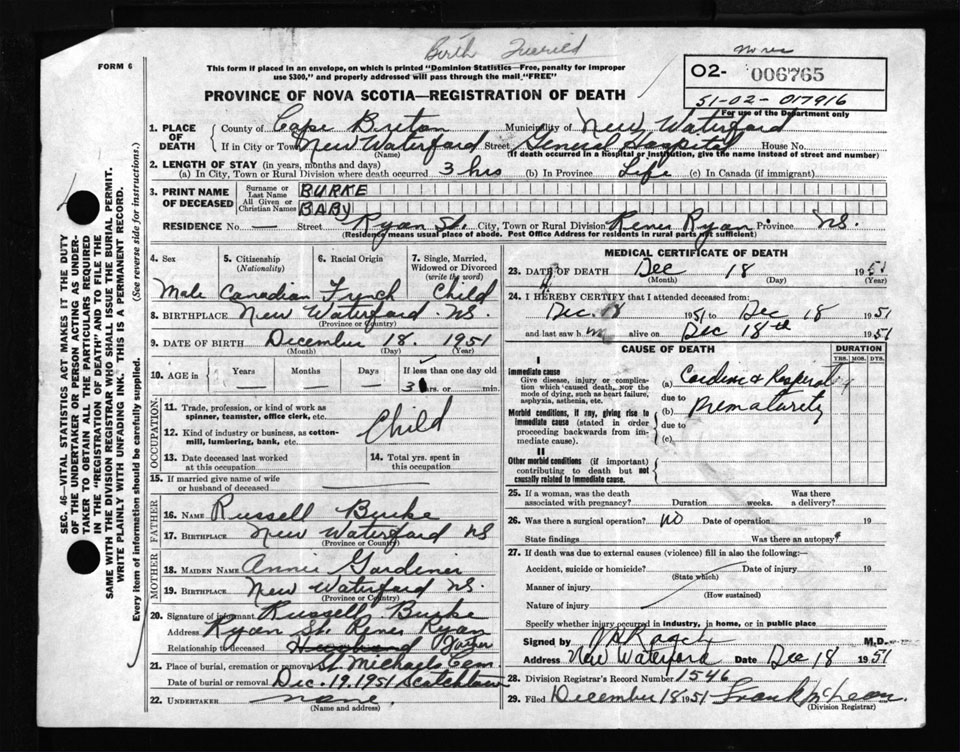 Birth
FORM 6
This form if placed in an envelope, on which is printed "Dominion Statistics—Free, penalty for improper
use $300," and properly addressed will pass through the mail "FREE"
O2- 006765
51-02-017916
For use of the Department only
PROVINCE OF NOVA SCOTIA—REGISTRATION OF DEATH
1. PLACE OF DEATH { County of Cape Breton Municipality of New Waterford
If in City or Town New Waterford Street General Hospital House No.
(Name) (If death occurred in a hospital or institution, give the name instead of street and number)
2. LENGTH OF STAY (in years, months and days)
(a) In City, Town or Rural Division where death occurred 3 hrs (b) In Province Life (c) In Canada (if immigrant)
3. PRINT NAME OF DECEASED { Surname or Last Name BURKE
All Given or Christian Names BABY
RESIDENCE No. — Street Ryan St. City, Town or Rural Division Rener Ryan Province NS
(Residence means usual place of abode. Post Office Address for residents in rural parts not sufficient)
4. Sex 5. Citizenship (Nationality) 6. Racial Origin 7. Single, Married, Widowed or Divorced (write the word)
Male Canadian Frnch Child
8. BIRTHPLACE New Waterford NS.
(Province or Country)
9. DATE OF BIRTH December 18. 1951
(Month) (Day) (Year)
10. AGE in { Years Months Days If less than one day old
3 hrs. or min.
OCCUPATION
11. Trade, profession, or kind of work as spinner, teamster, office clerk, etc.
Child
12. Kind of industry or business, as cotton-mill, lumbering, bank, etc.
13. Date deceased last worked at this occupation
14. Total yrs. spent in this occupation
15. If married give name of wife or husband of deceased
FATHER
16. NAME Russell Burke
17. BIRTHPLACE New Waterford NS
(Province or Country)
MOTHER
18. MAIDEN NAME Annie Gardiner
19. BIRTHPLACE New Waterford NS.
(Province or Country)
20. Signature of informant Russell Burke
Address Ryan St. Rener Ryan
Relationship to deceased Husband Father
21. Place of burial, cremation or removal St. Michaels Cem
Date of burial or removal Dec. 19, 1951 Scotchtown
22. UNDERTAKER none.
(Name and address)
MEDICAL CERTIFICATE OF DEATH
23. DATE OF DEATH Dec 18 1951
(Month) (Day) (Year)
24. I HEREBY CERTIFY that I attended deceased from:
Dec. 18 1951 to Dec 18 1951
and last saw h m alive on Dec 18th 1951
CAUSE OF DEATH DURATION
YRS. MOS. DYS.
I
Immediate cause
Give disease, injury or complication which caused death, not the mode of dying, such as heart failure, asphyxia, asthenia, etc.
(a) Cardiac & Respiratory
due to
Morbid conditions, if any, giving rise to immediate cause (stated in order proceeding backwards from immediate cause).
(b) Prematurity
due to
(c)
II
Other morbid conditions (if important) contributing to death but not causally related to immediate cause.
25. If a woman, was the death associated with pregnancy? Duration weeks. Was there a delivery?
26. Was there a surgical operation? NO Date of operation 19
State findings Was there an autopsy?
27. If death was due to external causes (violence) fill in also the following:—
Accident, suicide or homicide? Date of injury 19
(State which)
Manner of injury
(How sustained)
Nature of injury
Specify whether injury occurred in industry, in home, or in public place
Signed by M.D.
Address New Waterford Date Dec 18 1951
28. Division Registrar's Record Number 1546
29. Filed December 18 1951 Frank McLean.
(Division Registrar)
SEC. 46—VITAL STATISTICS ACT MAKES IT THE DUTY
OF THE UNDERTAKER OR PERSON ACTING AS UNDERTAKER
TO OBTAIN ALL THE PARTICULARS REQUIRED
IN THE "REGISTRATION OF DEATH" AND TO FILE THE
SAME WITH THE DIVISION REGISTRAR WHO SHALL ISSUE THE BURIAL PERMIT.
WRITE PLAINLY WITH UNFADING INK. THIS IS A PERMANENT RECORD.
Every item of information should be carefully supplied. (See reverse side for instructions.)